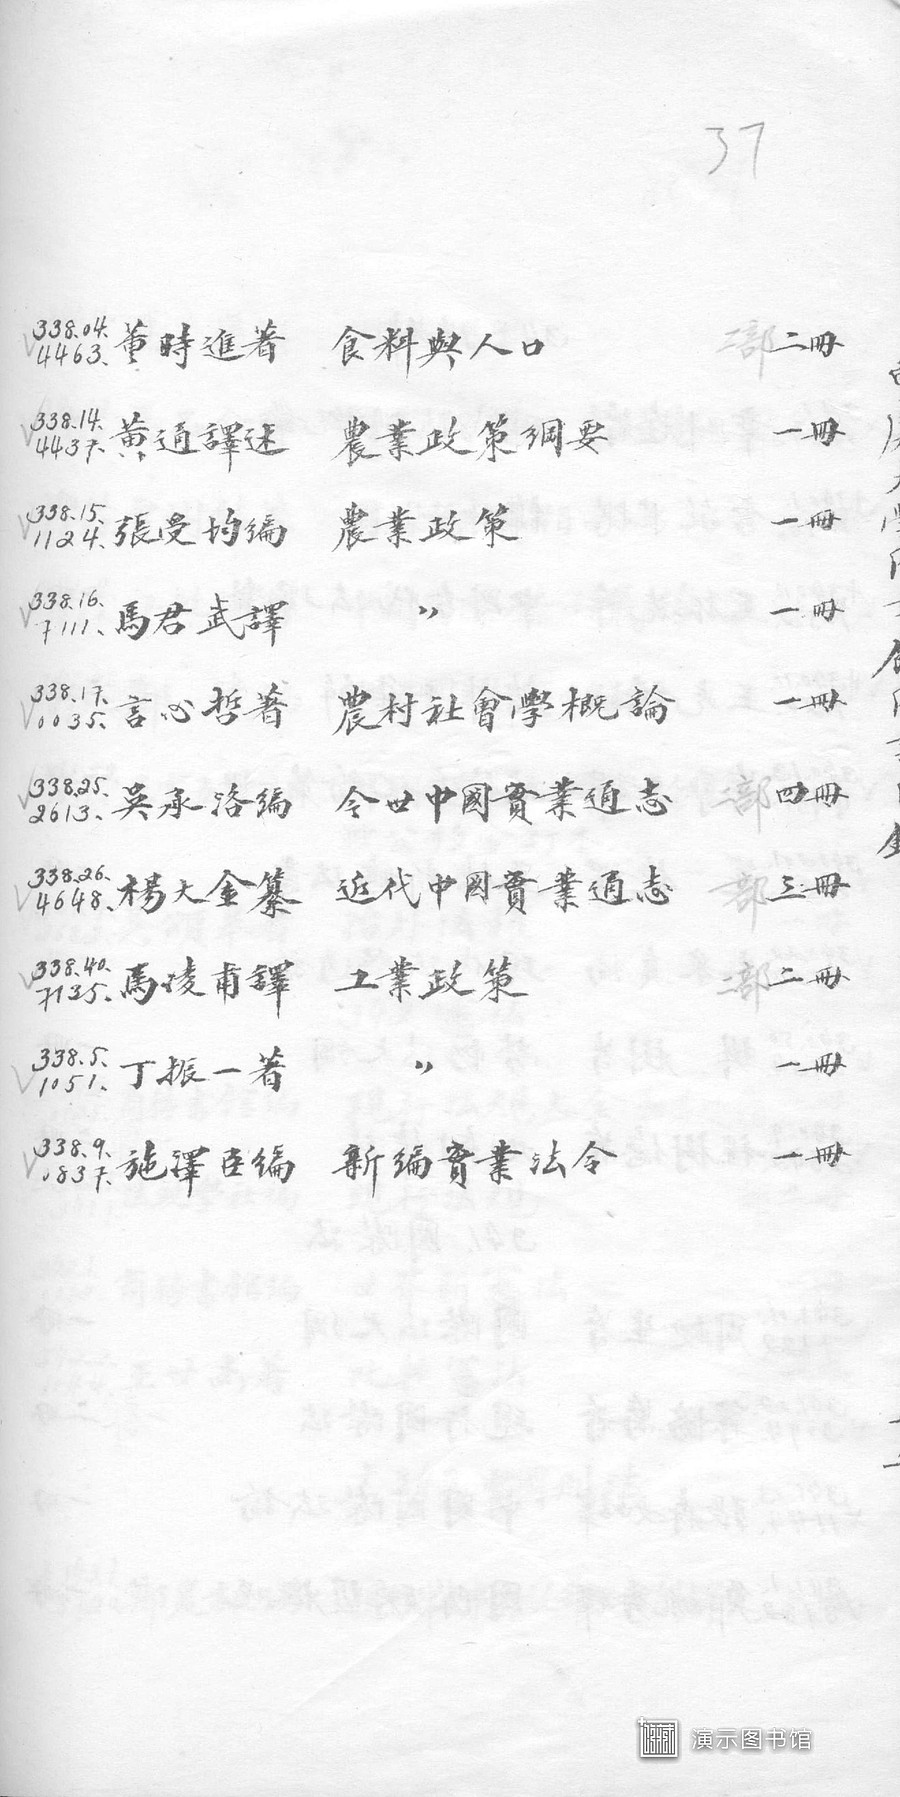 37
338.04. 4463. 董時進著 食料與人口 二部 二冊
338.14. 4437. 黃通譯述 農業政策綱要 一冊
338.15. 1124. 張受均編 農業政策 一冊
338.16. 7111. 馬君武譯 〃 一冊
338.17. 0035. 言心哲著 農村社會學概論 一冊
338.25. 2613. 吳承洛編 今世中國實業通志 二部 四冊
338.26. 4648. 楊大金纂 近代中國實業通志 一部 三冊
338.40. 7135. 馬凌甫譯 工業政策 二部 二冊
338.5. 1051. 丁振一著 〃 一冊
338.9. 0837. 施澤臣編 新編實業法令 一冊
演示图书馆